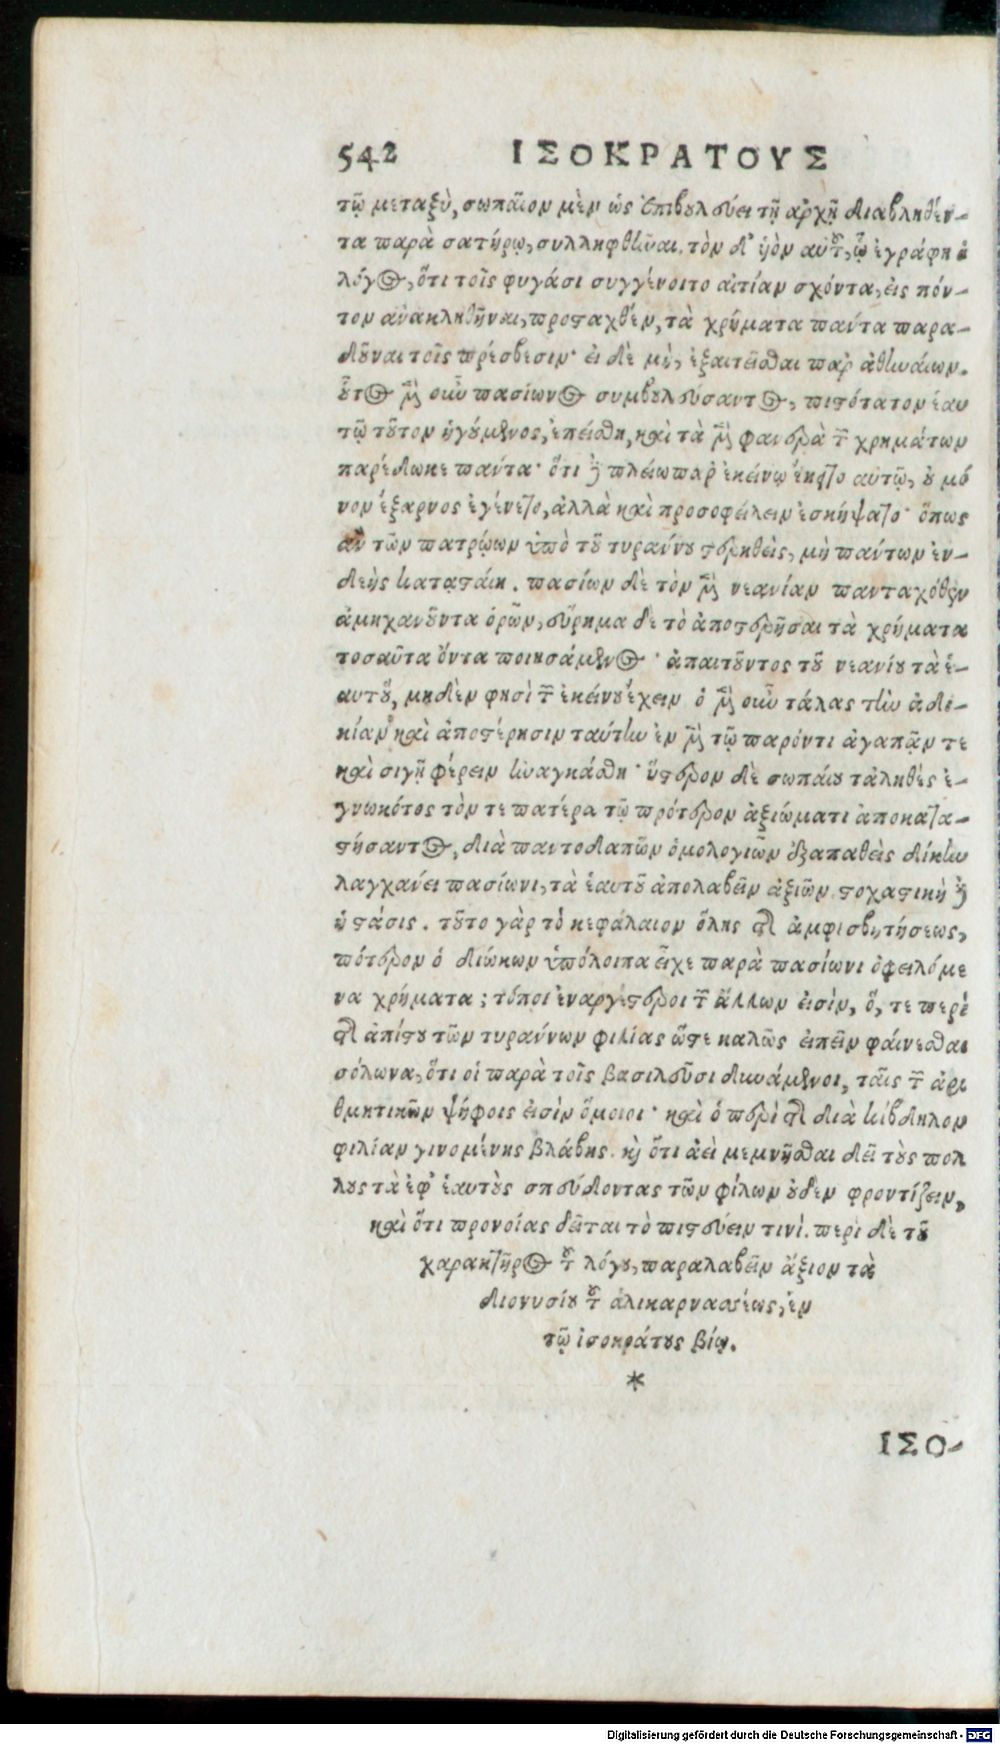 542 ΙΣΟΚΡΑΤΟΥΣ
τῷ μεταξὺ, σωπαῖον μὲν ὡς ἐπιβουλεύει τῇ ἀρχῇ διαβληθέν-
τα παρὰ σατήρῳ, συλληφθῆναι. τὸν δ' ὑὸν αὐτοῦ, ᾧ ἐγράφη ὁ
λόγος, ὅτι τοῖς φυγάσι συγγένοιτο αἰτίαν σχόντα, εἰς πόν-
τον ἀνακληθῆναι, προσταχθὲν, τὰ χρήματα πάντα παρα-
δοῦναι τοῖς πρέσβεσιν· εἰ δὲ μὴ, ἐξαιτεῖσθαι παρ' ἀθηναίων.
οὗτος μὲν οὖν πασίωνος συμβουλεύσαντος, πιστότατον ἑαυ
τῷ τοῦτον ἡγούμενος, ἐπείσθη, καὶ τὰ μὲν φανερὰ τῶν χρημάτων
παρέδωκε πάντα· ὅτι δὲ πλείω παρ' ἐκείνῳ ἔκειτο αὐτῷ, οὐ μό
νον ἔξαρνος ἐγένετο, ἀλλὰ καὶ προσοφείλειν ἐσκήψατο· ὅπως
ἂν τῶν πατρῴων ὑπὸ τοῦ τυράννου στερηθεὶς, μὴ πάντων ἐν-
δεὴς καταστάιη. πασίων δὲ τὸν μὲν νεανίαν πανταχόθεν
ἀμηχανοῦντα ὁρῶν, εὕρημα δὲ τὸ ἀποστερῆσαι τὰ χρήματα
τοσαῦτα ὄντα ποιησάμενος· ἀπαιτοῦντος τοῦ νεανίου τὰ ἑ-
αυτοῦ, μηδὲν φησὶ τῶν ἐκείνου ἔχειν ὁ μὲν οὖν τάλας τὴν ἀδι-
κίαν καὶ ἀποστέρησιν ταύτην ἐν μὲν τῷ παρόντι ἀγαπᾷν τε
καὶ σιγῇ φέρειν ἠναγκάσθη· ὕστερον δὲ σωπαίου τἀληθὲς ἐ-
γνωκότος τὸν τε πατέρα τῷ πρότερον ἀξιώματι ἀποκατα-
στήσαντος, διὰ παντοδαπῶν ὁμολογιῶν ἐξαπαθεὶς δίκην
λαγχάνει πασίωνι, τὰ ἑαυτοῦ ἀπολαβεῖν ἀξιῶν. στοχαστικὴ δὲ
ἡ στάσις. τοῦτο γὰρ τὸ κεφάλαιον ὅλης τῆς ἀμφισβητήσεως,
πότερον ὁ διώκων ὑπόλοιπα εἶχε παρὰ πασίωνι ὀφειλόμε
να χρήματα; τόποι ἐναργέστεροι τῶν ἄλλων εἰσὶν, ὅ, τε περὶ
τῆς ἀπίστου τῶν τυράννων φιλίας ὥστε καλῶς εἰπεῖν φαίνεσθαι
σόλωνα, ὅτι οἱ παρὰ τοῖς βασιλεῦσι δυνάμενοι, ταῖς τῶν ἀρι
θμητικῶν ψήφοις εἰσὶν ὅμοιοι· καὶ ὁ περὶ τῆς διὰ κίβδηλον
φιλίαν γινομένης βλάβης. καὶ ὅτι ἀεὶ μεμνῆσθαι δεῖ τοὺς πολ
λοὺς τὰ ἐφ' ἑαυτοὺς σπεύδοντας τῶν φίλων οὐδὲν φροντίζειν,
καὶ ὅτι προνοίας δεῖται τὸ πιστεύειν τινί. περὶ δὲ τοῦ
χαρακτῆρος τοῦ λόγου, παραλαβεῖν ἄξιον τὰ
διονυσίου τοῦ ἁλικαρνασέως, ἐν
τῷ ἰσοκράτους βίῳ.
*
ΙΣΟ-
Digitalisierung gefördert durch die Deutsche Forschungsgemeinschaft - DFG